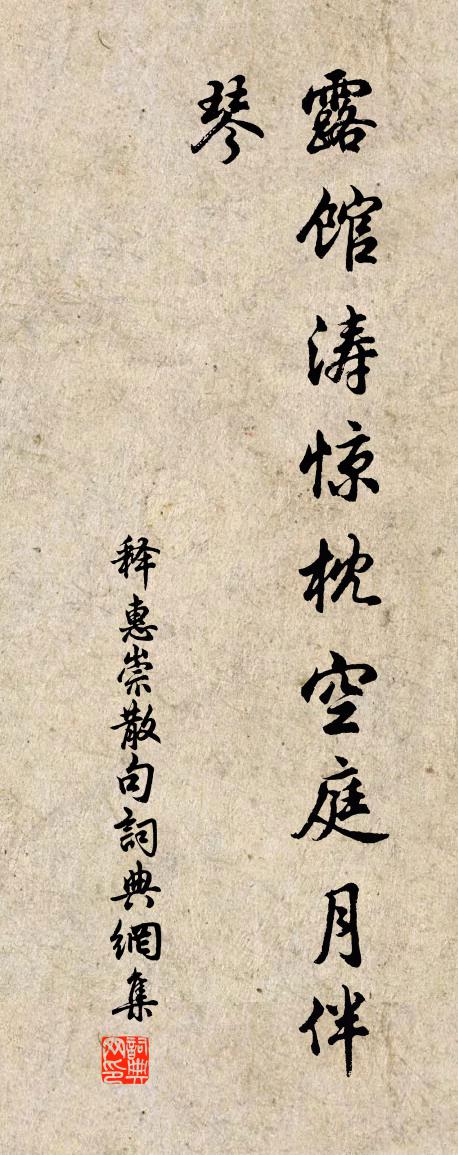 露馆涛惊枕空庭月伴
琴
释惠崇散句詞典網集
詞典
网印